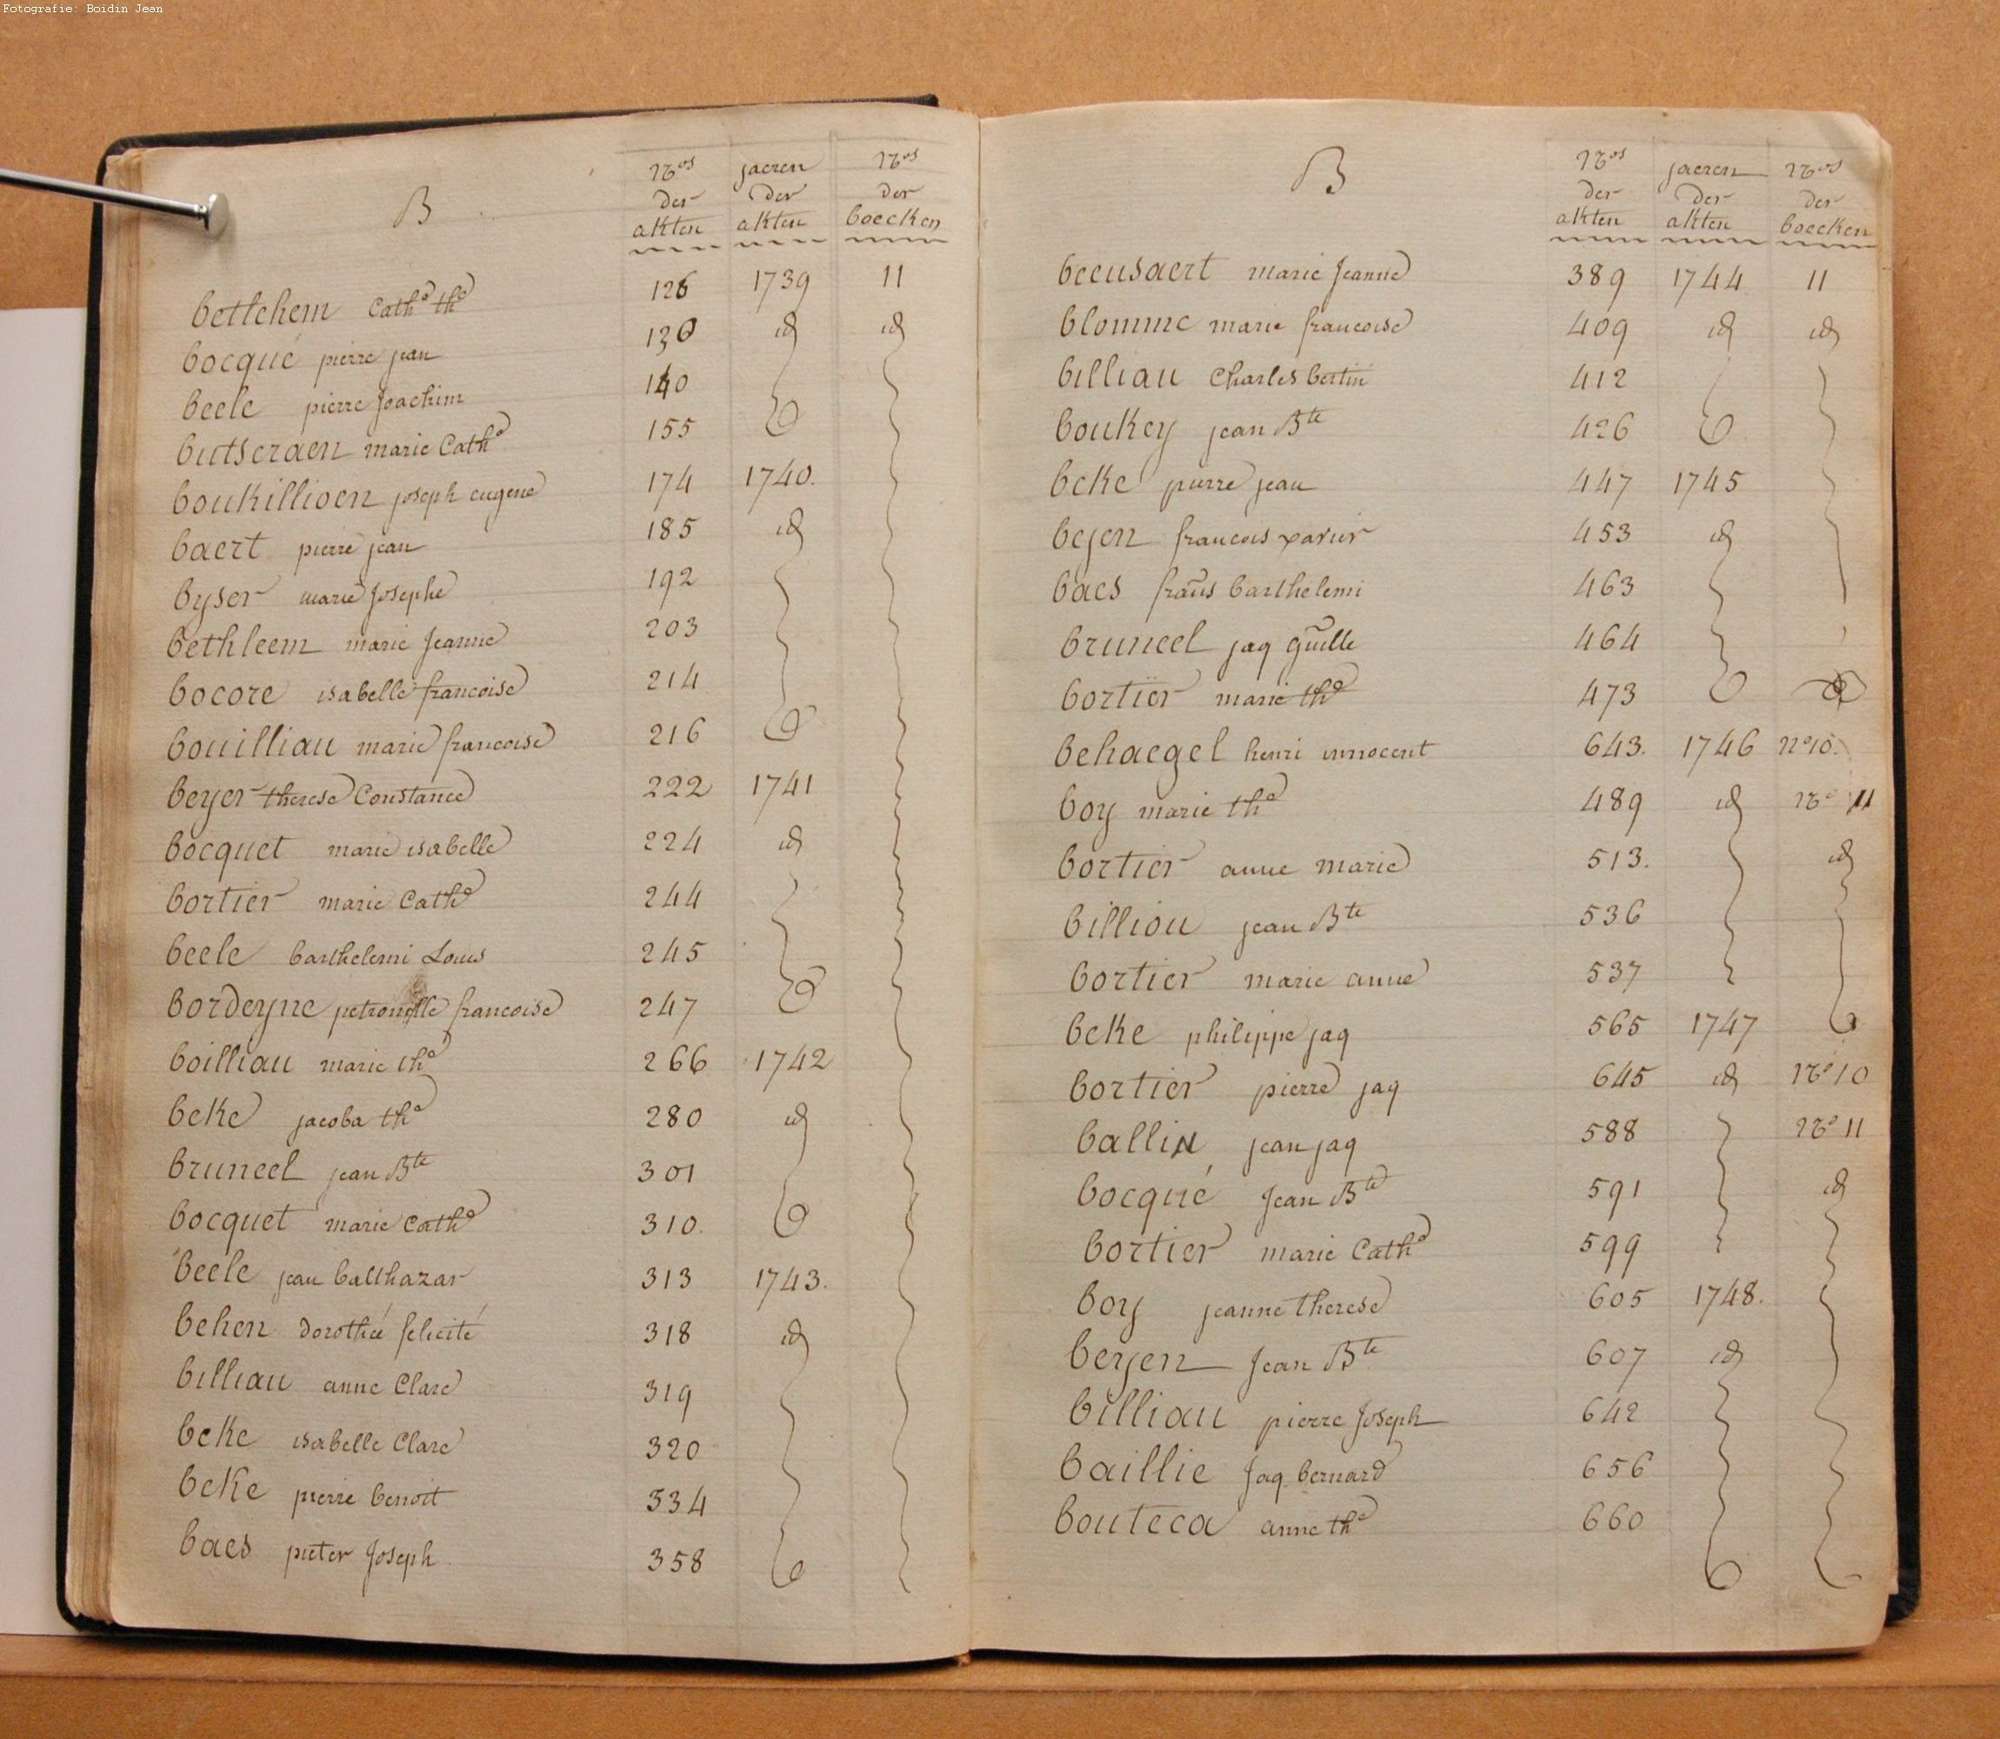 Fotografie: Boidin Jean
B
Nos jaeren Nos
der der der
akten akten boecken
bethehem Cathe the 126 1739 11
bocqué pierre jean 130 id id
beele pierre Joachim 140
butseraen marie Cathe 155
boukillioen joseph eugene 174 1740.
baert pierre jean 185 id
byser marie Josephe 192
bethleem marie Jeanne 203
bocore isabelle francoise 214
bouilliau marie francoise 216
beyer therese Constance 222 1741
bocquet marie isabelle 224 id
bortier marie Cathe 244
beele barthelemi Louis 245
bordeyne petronille francoise 247
boilliau marie the 266 1742
beke jacoba the 280 id
bruneel jean Bte 301
bocquet marie Cathe 310.
beele jean balthazar 313 1743.
behen dorothée felicité 318 id
billiau anne Clare 319
beke isabelle Clare 320
beke pierre benoit 334
baes pieter Joseph 358
B
Nos jaeren Nos
der der der
akten akten boecken
beeusaert marie Jeanne 389 1744 11
blomme marie francoise 409 id id
billiau Charles bertin 412
boukey jean Bte 426
beke pierre jean 447 1745
beyen francois xavier 453 id
baes frans barthelemi 463
bruneel jaq Guille 464
bortier marie the 473
behaegel henri innocent 643. 1746 no 10.
boy marie the 489 id No 11
bortier anne marie 513. id
billiou jean Bte 536
bortier marie anne 537
beke philippe jaq 565 1747
bortier pierre jaq 645 id No 10
ballin jean jaq 588 No 11
bocqué Jean Bte 591 id
bortier marie Cathe 599
boy jeanne therese 605 1748.
beyen Jean Bte 607 id
billiau pierre Joseph 642
baillie Jaq bernard 656
bouteca anne the 660